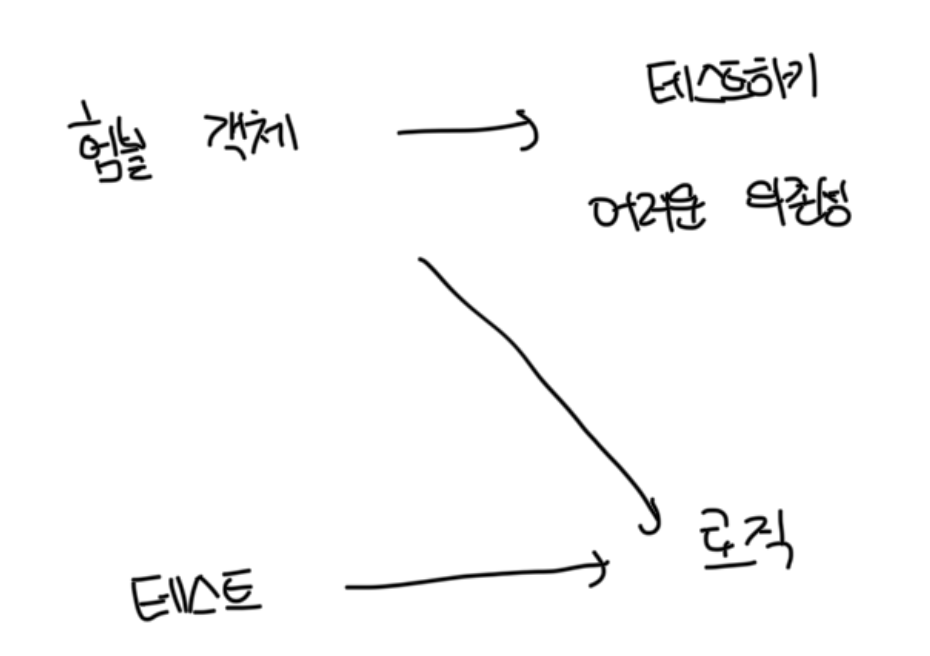 험블 객체
테스트하기
어려운 의존성
로직
테스트